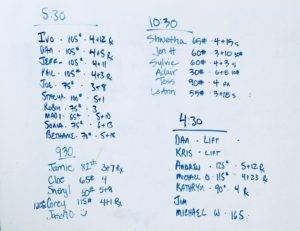 5:30
Ivo · 105# · 4+12 Rx
Dan · 105# · 4+5 Rx
Jeff · 105# · 4+11
Phil · 105# · 4+3 Rx
Joe · 75# · 3+8
Stacy · 100# · 5+1
Robin · 75# · 3
Madi · 65# · 5+
Sonia · 75# · 6+13
Bethanie · 75# · 5+
9:30
Jamie 3+7 Rx
Cloe 65# 4
Sheryl 5+8
Corey 115# 4+1 Rx
Jason
10:30
Shwetha 65# 4+15
Jen H 60# 4+10
Sylvie 60# 4+3
Adair 30# 6+8
Tess 90# 4 Rx
LeAnn 55# 3+18
4:30
Dan - Lift
Kris - Lift
Andrew · 125# · 5+12 Rx
Michael D · 115# · 4+23 Rx
Kathryn · 90# · 4 Rx
Jim
Michael W · 165